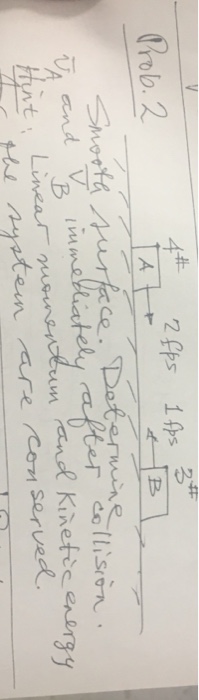 4# 2 fps 1 fps 3#
Prob. 2 A B
Smooth surface. Determine
v̄A and V̄B immediately after collision.
Hint: Linear momentum and Kinetic energy
of the system are conserved.